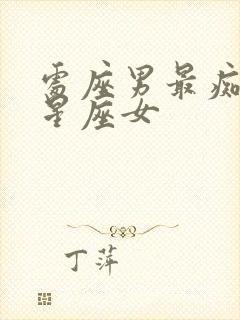 雷座男最痴
星座女
丁萍